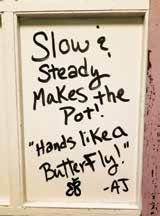 Slow &
Steady
Makes the
Pot!
"Hands like a
Butterfly!"
-AJ